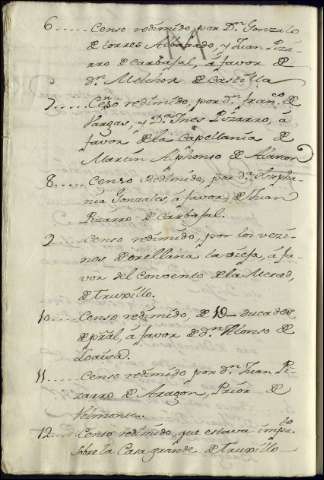 6..... Censo redimido, por Dn. Gonzalo
de torres Albarado, y Juan Piza-
rro de Carbajal, á favor de
Dn. Melchor de Castilla
7..... Censo redimido, por dn. franco. de
Vargas, y Da. Ines Pizarro, á
favor de la Capellania de
Martin Alphonso de
8..... Censo redimido, por
Gonzales, á favor de Juan
Pizarro de Carbajal.
9.... Censo redimido, por los vezi-
nos de orellana la vieja, á fa-
vor del convento de la Merced,
de Truxillo.
10..... Censo redimido, de 10 ducados
de pral, á favor de dn. Alonso de
Loaisa.
11..... Censo redimido por dn. Juan Pi-
zarro de Aragon, Prior de
12.... Censo redimido, que estava impco.
sobre la Casa grande de Truxillo